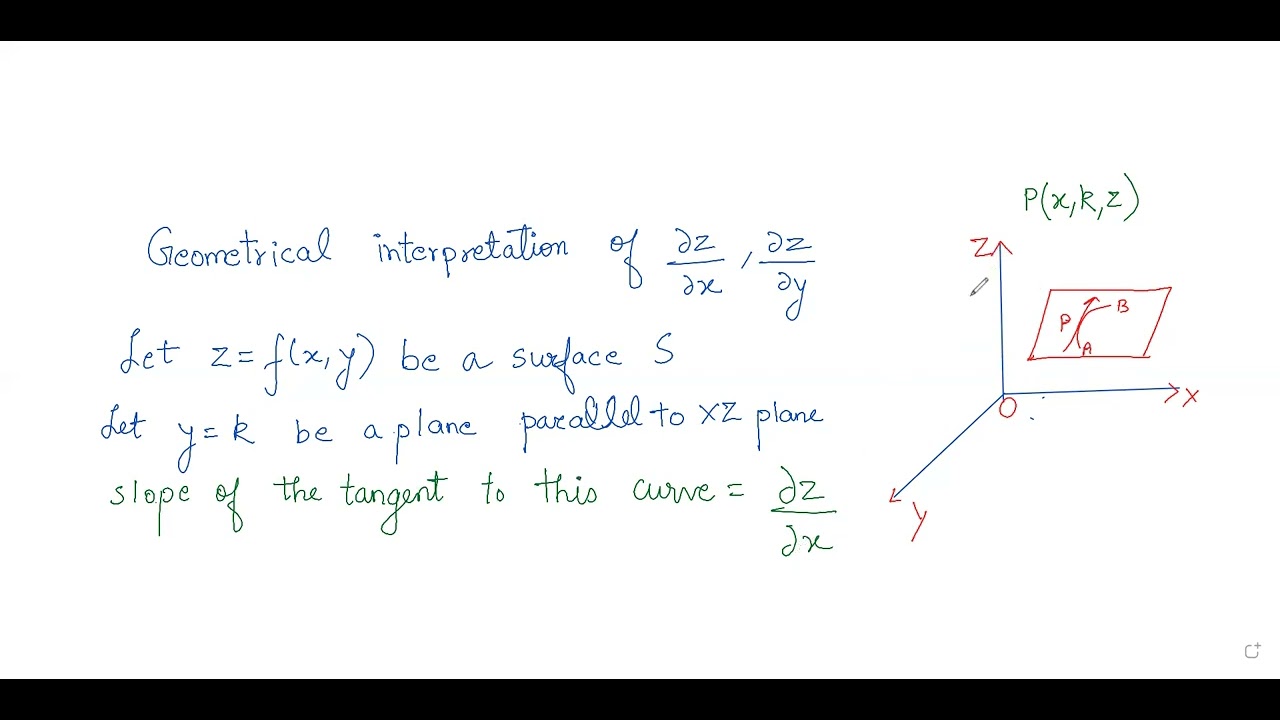 Geometrical interpretation of ∂z/∂x, ∂z/∂y
Let z=f(x,y) be a surface S
Let y=k be a plane parallel to XZ plane
slope of the tangent to this curve = ∂z/∂x
P(x,k,z)
Z
P
B
A
O
X
Y